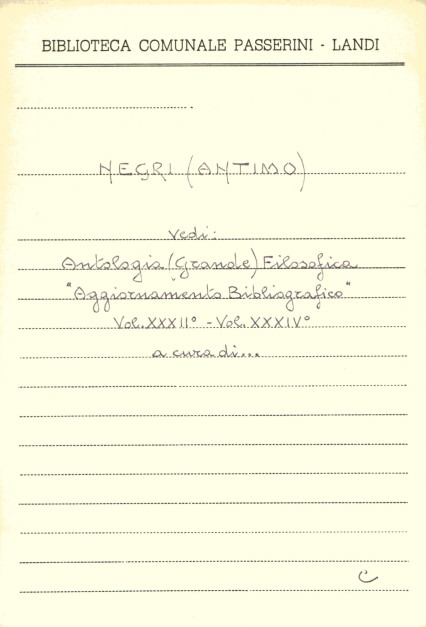 BIBLIOTECA COMUNALE PASSERINI - LANDI
NEGRI (ANTIMO)
Vedi:
Antologia (Grande) Filosofica
"Aggiornamento Bibliografico"
Vol. XXXII° - Vol. XXXIV°
a cura di...
C